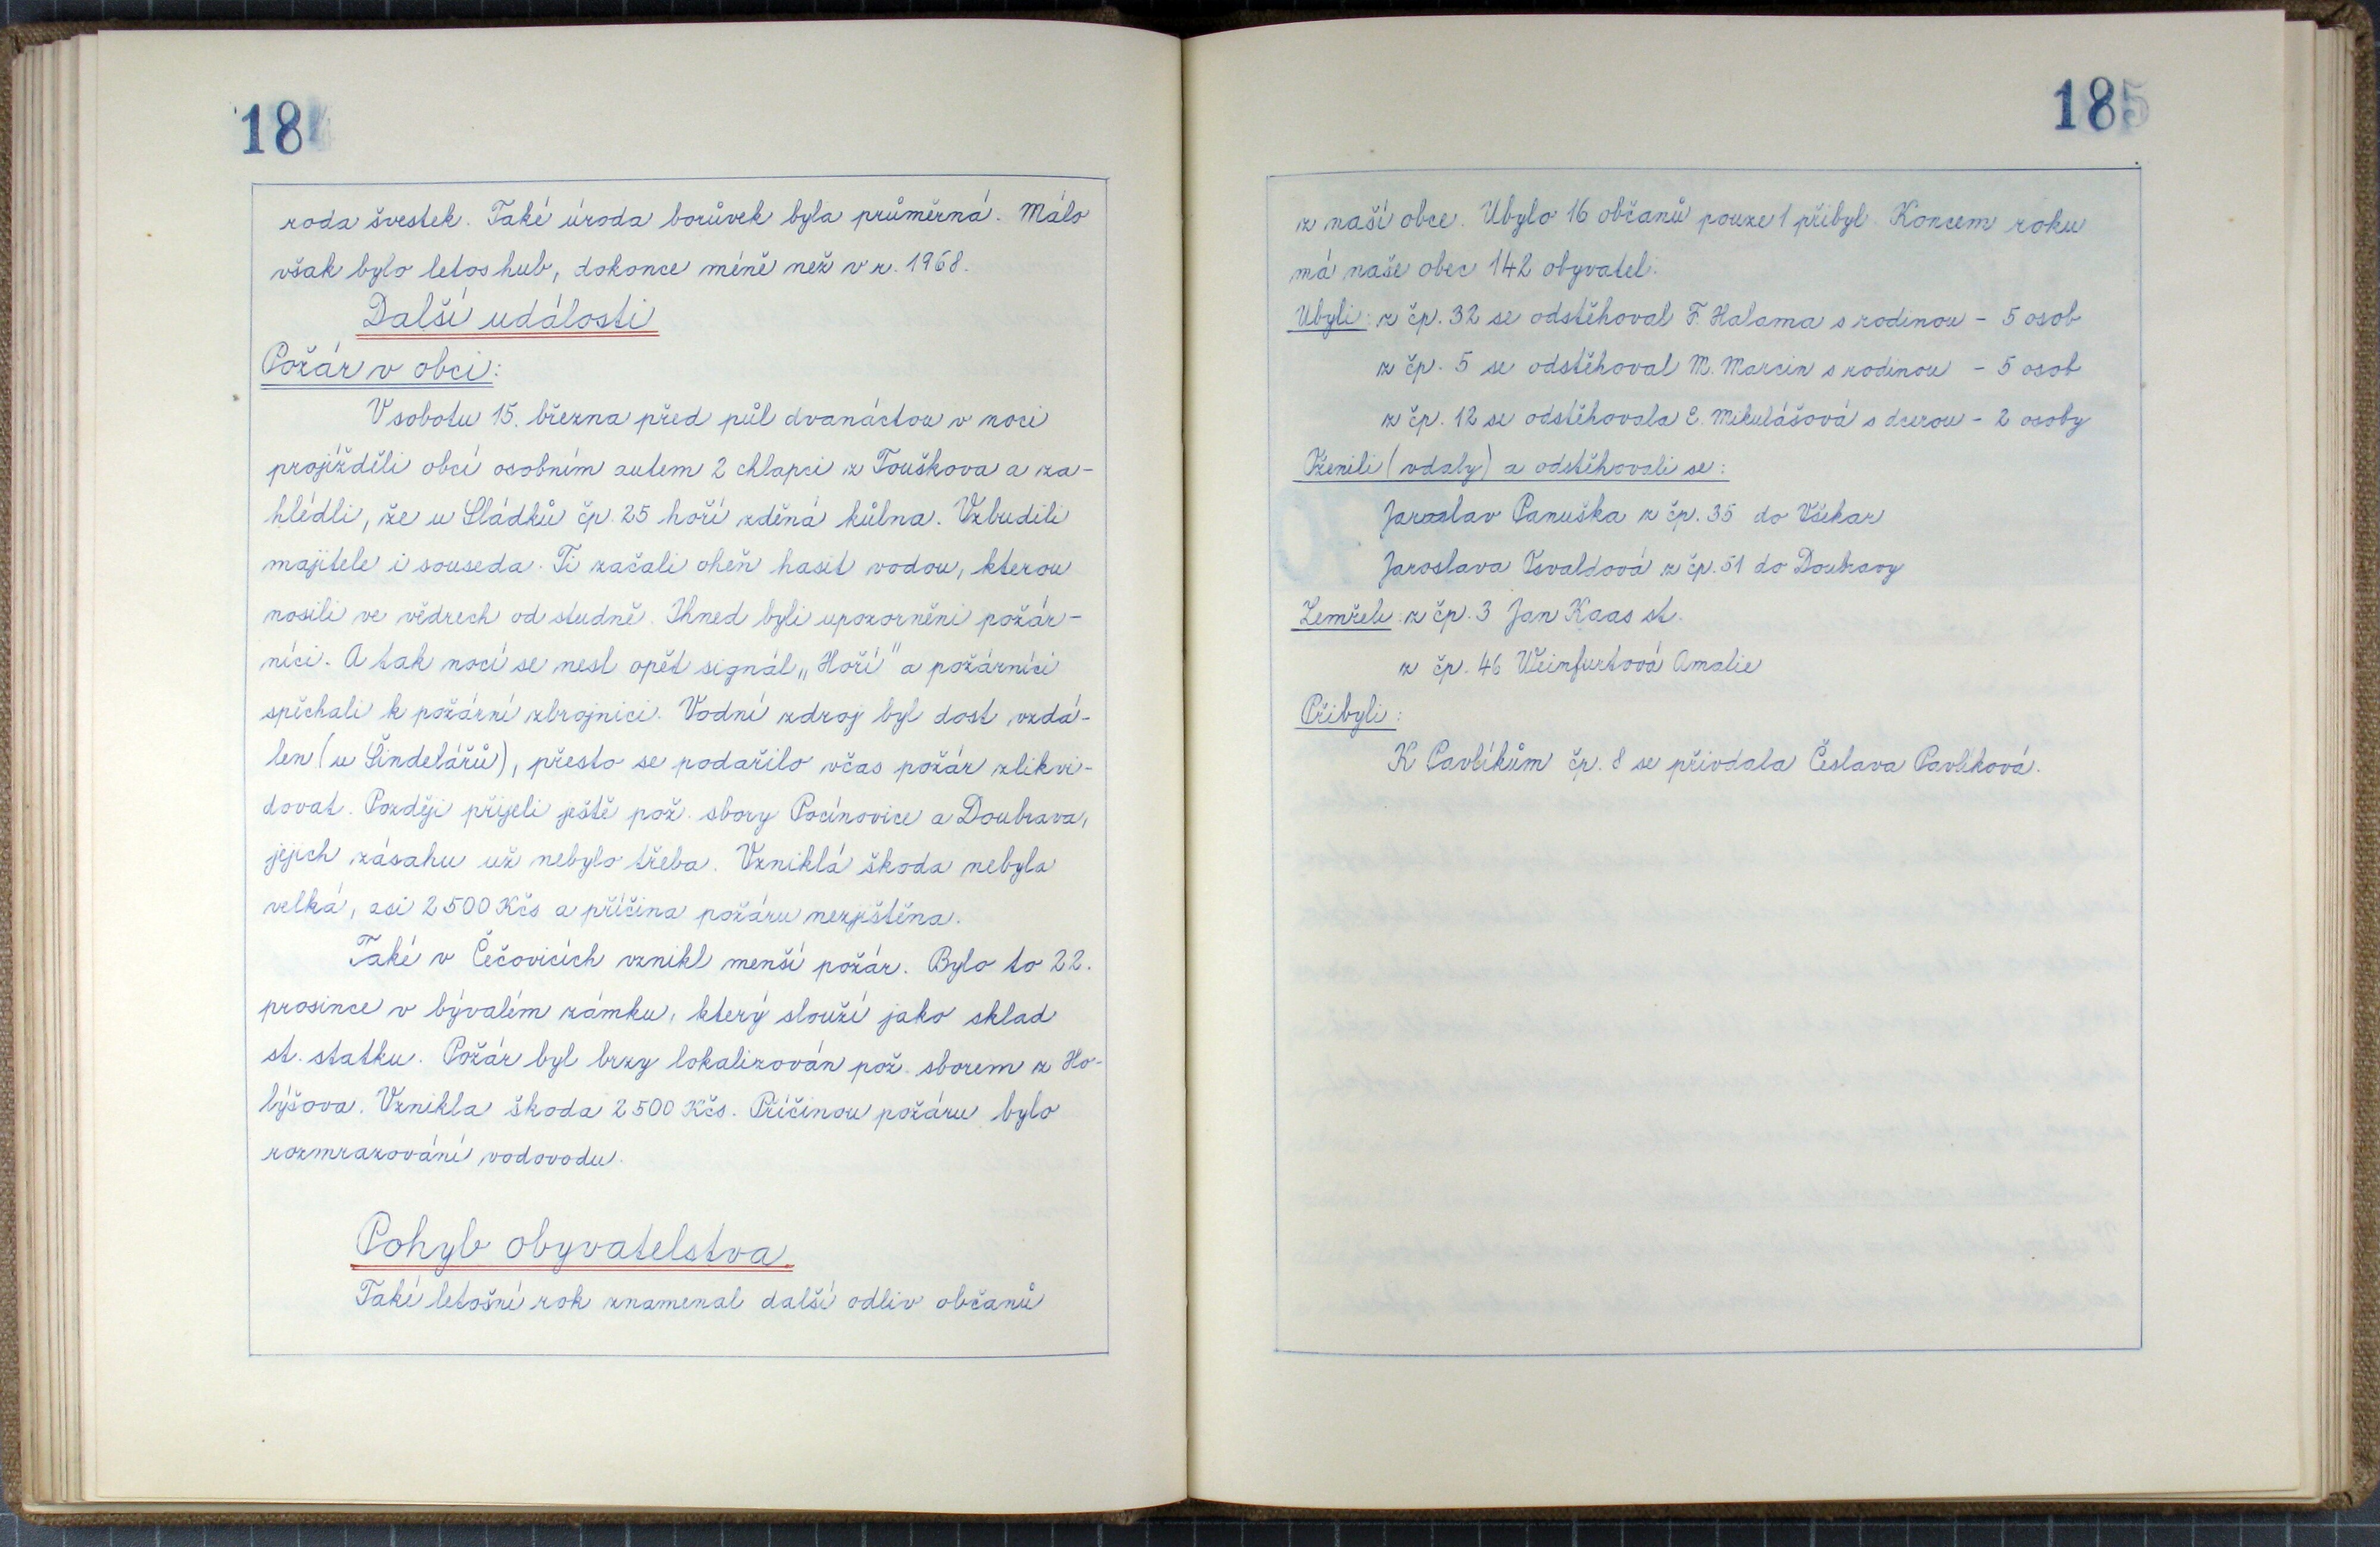 184
roda švestek. Také úroda borůvek byla průměrná. Málo
však bylo letos hub, dokonce méně než v r. 1968.
Další události
Požár v obci:
V sobotu 15. března před půl dvanáctou v noci
projížděli obcí osobním autem 2 chlapci z Touškova a za-
hlédli, že u Sládků čp. 25 hoří zděná kůlna. Vzbudili
majitele i souseda. Ti začali oheň hasit vodou, kterou
nosili ve vědrech od studně. Ihned byli upozorněni požár-
níci. A tak nocí se nesl opět signál „Hoří" a požárníci
spěchali k požární zbrojnici. Vodní zdroj byl dost vzdá-
len (u Šindelářů), přesto se podařilo včas požár zlikvi-
dovat. Později přijeli ještě pož. sbory Pocínovice a Doubrava,
jejich zásahu už nebylo třeba. Vzniklá škoda nebyla
velká, asi 2500 Kčs a příčina požáru nezjištěna.
Také v Čečovicích vznikl menší požár. Bylo to 22.
prosince v bývalém zámku, který slouží jako sklad
st. statku. Požár byl brzy lokalizován pož. sborem z Ho-
lýšova. Vznikla škoda 2500 Kčs. Příčinou požáru bylo
rozmrazování vodovodu.
Pohyb obyvatelstva.
Také letošní rok znamenal další odliv občanů
185
z naší obce. Ubylo 16 občanů pouze 1 přibyl. Koncem roku
má naše obec 142 obyvatel.
Ubyli: z čp. 32 se odstěhoval F. Halama s rodinou - 5 osob
z čp. 5 se odstěhoval M. Marcin s rodinou - 5 osob
z čp. 12 se odstěhovala E. Mikulášová s dcerou - 2 osoby
Oženili (vdaly) a odstěhovali se:
Jaroslav Panuška z čp. 35 do Všekar
Jaroslava Osvaldová z čp. 51 do Doubravy
Zemřeli: z čp. 3 Jan Kaas st.
z čp. 46 Weinfurtová Amalie
Přibyli:
K Pavlíkům čp. 8 se přivdala Česlava Pavlíková.